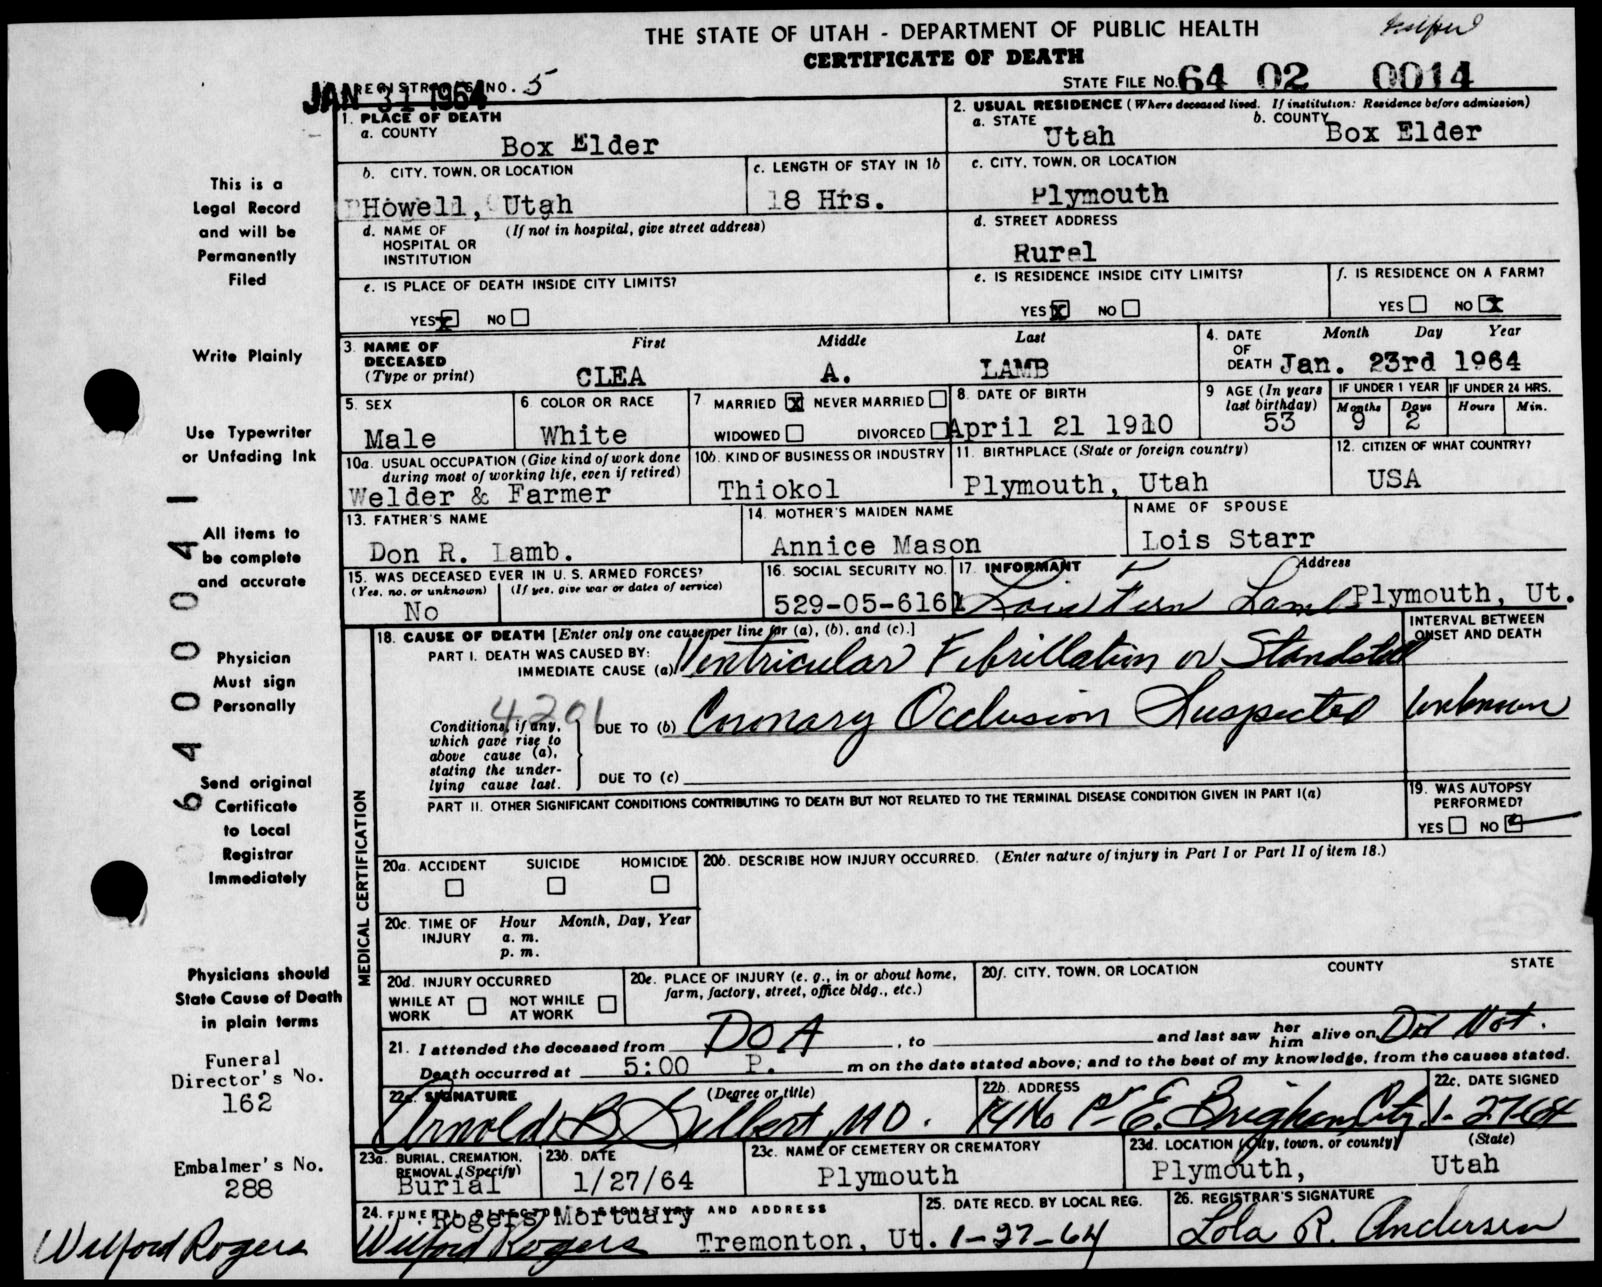 THE STATE OF UTAH - DEPARTMENT OF PUBLIC HEALTH
CERTIFICATE OF DEATH
JAN 31 1964
REGISTRAR'S NO. 5
STATE FILE NO. 64 02 0014
1. PLACE OF DEATH
a. COUNTY Box Elder
2. USUAL RESIDENCE (Where deceased lived. If institution: Residence before admission)
a. STATE Utah
b. COUNTY Box Elder
b. CITY, TOWN, OR LOCATION
Howell, Utah
c. LENGTH OF STAY IN 1b
18 Hrs.
c. CITY, TOWN, OR LOCATION
Plymouth
d. NAME OF HOSPITAL OR INSTITUTION (If not in hospital, give street address)
d. STREET ADDRESS
Rural
e. IS PLACE OF DEATH INSIDE CITY LIMITS?
YES X NO
e. IS RESIDENCE INSIDE CITY LIMITS?
YES X NO
f. IS RESIDENCE ON A FARM?
YES NO X
3. NAME OF DECEASED (Type or print)
First Middle Last
CLEA A. LAMB
4. DATE OF DEATH
Month Day Year
Jan. 23rd 1964
5. SEX
Male
6. COLOR OR RACE
White
7. MARRIED X NEVER MARRIED
WIDOWED DIVORCED
8. DATE OF BIRTH
April 21 1910
9 AGE (In years last birthday)
53
IF UNDER 1 YEAR
Months Days
9 2
IF UNDER 24 HRS.
Hours Min.
10a. USUAL OCCUPATION (Give kind of work done during most of working life, even if retired)
Welder & Farmer
10b. KIND OF BUSINESS OR INDUSTRY
Thiokol
11. BIRTHPLACE (State or foreign country)
Plymouth, Utah
12. CITIZEN OF WHAT COUNTRY?
USA
13. FATHER'S NAME
Don R. Lamb.
14. MOTHER'S MAIDEN NAME
Annice Mason
NAME OF SPOUSE
Lois Starr
15. WAS DECEASED EVER IN U. S. ARMED FORCES?
(Yes, no, or unknown) (If yes, give war or dates of service)
No
16. SOCIAL SECURITY NO.
529-05-6161
17. INFORMANT Address
Lois Fern Lamb Plymouth, Ut.
MEDICAL CERTIFICATION
18. CAUSE OF DEATH [Enter only one cause per line for (a), (b), and (c).]
INTERVAL BETWEEN ONSET AND DEATH
PART I. DEATH WAS CAUSED BY:
IMMEDIATE CAUSE (a) Ventricular Fibrillation or Standstill
4201
Conditions, if any, which gave rise to above cause (a), stating the underlying cause last.
DUE TO (b) Coronary Occlusion Suspected Unknown
DUE TO (c)
PART II. OTHER SIGNIFICANT CONDITIONS CONTRIBUTING TO DEATH BUT NOT RELATED TO THE TERMINAL DISEASE CONDITION GIVEN IN PART I(a)
19. WAS AUTOPSY PERFORMED?
YES NO
20a. ACCIDENT SUICIDE HOMICIDE
20b. DESCRIBE HOW INJURY OCCURRED. (Enter nature of injury in Part I or Part II of item 18.)
20c. TIME OF INJURY
Hour Month, Day, Year
a. m.
p. m.
20d. INJURY OCCURRED
WHILE AT WORK NOT WHILE AT WORK
20e. PLACE OF INJURY (e. g., in or about home, farm, factory, street, office bldg., etc.)
20f. CITY, TOWN, OR LOCATION COUNTY STATE
21. I attended the deceased from DOA, to and last saw her him alive on Did Not.
Death occurred at 5:00 P. m on the date stated above; and to the best of my knowledge, from the causes stated.
22a. SIGNATURE (Degree or title)
Arnold B Gilbert, MD.
22b. ADDRESS
14 No 1st E. Brigham City
22c. DATE SIGNED
1-27-64
23a. BURIAL, CREMATION, REMOVAL (Specify)
Burial
23b. DATE
1/27/64
23c. NAME OF CEMETERY OR CREMATORY
Plymouth
23d. LOCATION (City, town, or county) (State)
Plymouth, Utah
24. FUNERAL DIRECTOR'S SIGNATURE AND ADDRESS
Rogers Mortuary
Wilford Rogers Tremonton, Ut.
25. DATE RECD. BY LOCAL REG.
1-27-64
26. REGISTRAR'S SIGNATURE
Lola R. Andersen
This is a
Legal Record
and will be
Permanently
Filed
Write Plainly
Use Typewriter
or Unfading Ink
All items to
be complete
and accurate
Physician
Must sign
Personally
Send original
Certificate
to Local
Registrar
Immediately
Physicians should
State Cause of Death
in plain terms
Funeral
Director's No.
162
Embalmer's No.
288
Wilford Rogers
64000041